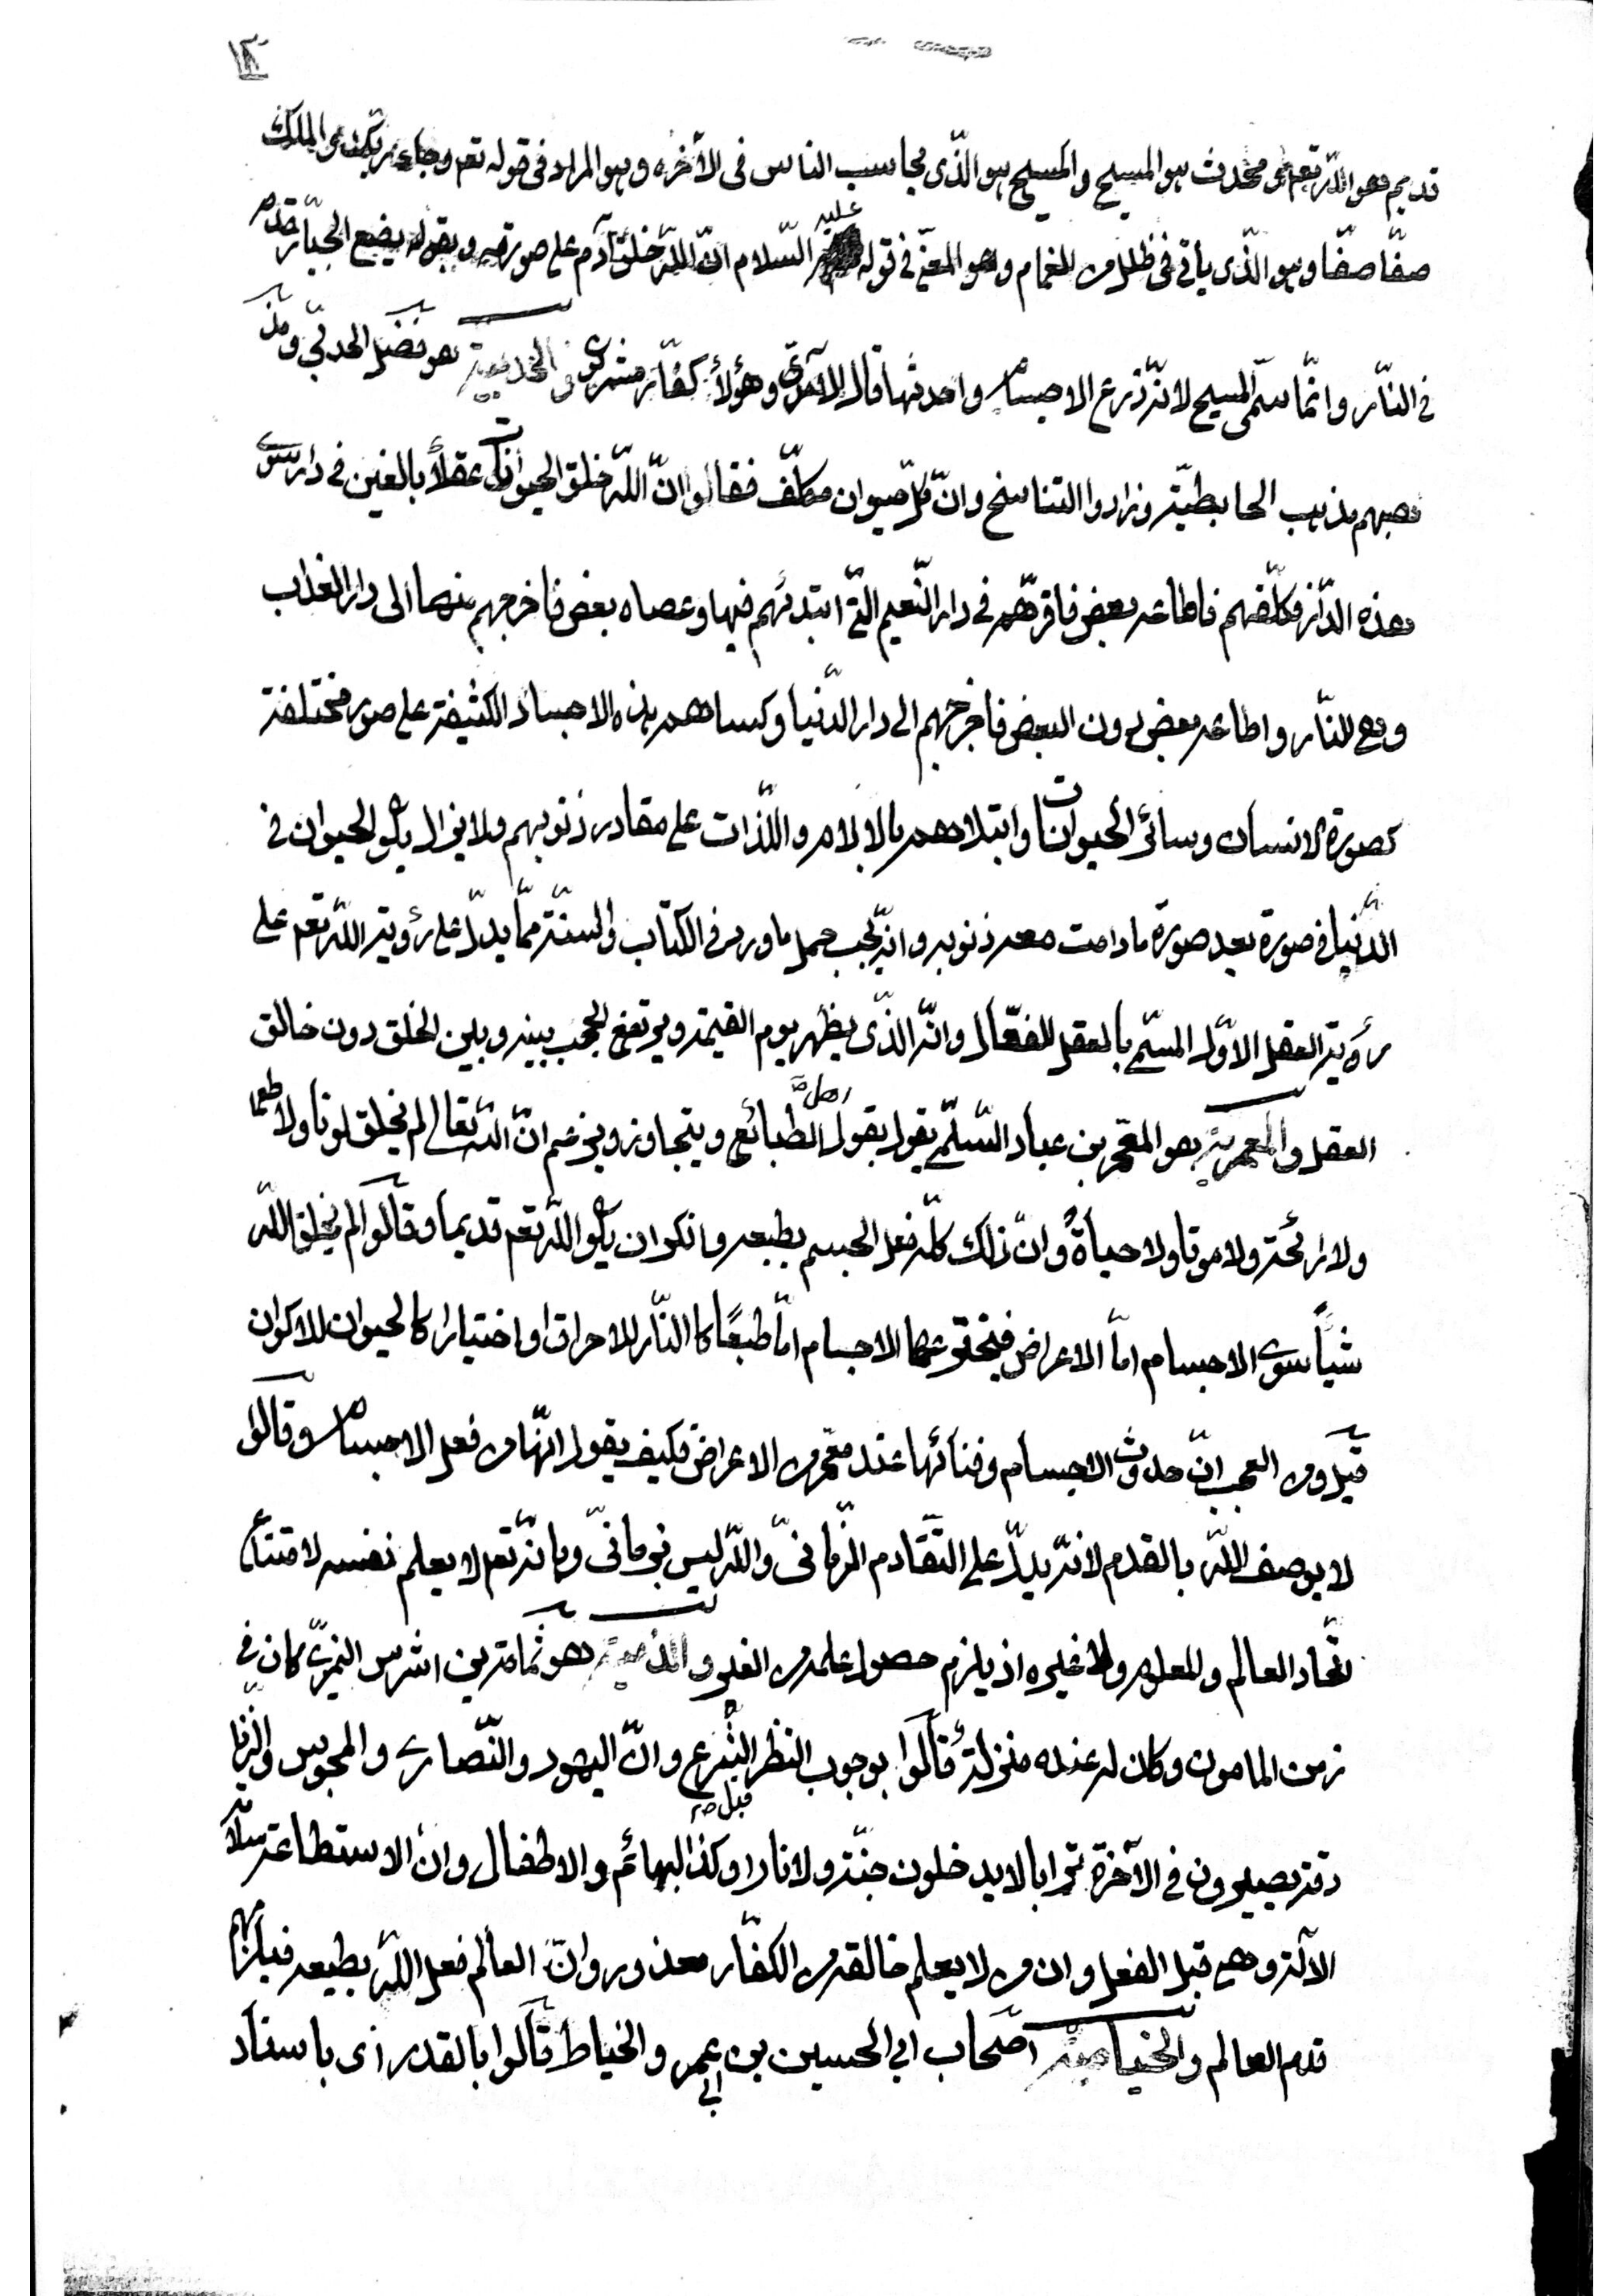 ١٢
قديم وهو اللّه تعم ومحدث هو المسيح والمسيح هو الذّى يحاسب الناس فى الآخره وهو المراد فى قوله تعم وجاء ربّك والملك
صفّا صفّا وهو الذّى يأتى فى ظلل من الغمام وهو المعنىّ فى قوله عليه السّلام انّ اللّه خلق آدم على صورته وبقوله يضع الجبّار قدمه
فى النّار وانّما سمّى المسيح لانّه ذرع الاجسام واحدثها قال الآمدى وهؤلاء كفّار مشركون والحدبية هو فضل الحدبىّ ومن
مذهبهم مذهب الحابطيّة وزادوا التناسخ وانّ كلّ حيوان مكلّف فقالوا انّ اللّه خلق الحيوانات عقلاً بالغين فى دار سوى
هذه الدّار وكلّفهم فاطاعه بعض فاقرّهم فى دار النّعيم الّتى ابتدئهم فيها وعصاه بعض فاخرجهم منها الى دار العذاب
وهى النّار واطاعه بعض دون البعض فاخرجهم الى دار الدّنيا وكساهم هذه الاجساد الكثيفة على صور مختلفة
كصورة الانسان وسائر الحيوانات وابتلاهم بالآلام واللّذات على مقادر ذنوبهم ولا يزال يكون الحيوان فى
الدّنيا فى صورة بعد صورة ما دامت معه ذنوبه وانّه يجب حمل ما ورد فى الكتاب والسنّة ممّا يدلّ على رؤية اللّه تعم على
رؤية العقل الاوّل المسمّى بالعقل الفعّال وانّه الذّى يظهر يوم القيمة ويرتفع الحجب بينه وبين الخلق دون خالق
العقل والمعمرية هو المعمّر بن عباد السّلّمى يقول بقول اهل الطبائع ويتجاوز ويزعم انّ اللّه تعالى لم يخلق لونا ولا طعما
ولا رائحة ولا موتا ولا حياةً وانّ ذلك كلّه فعل الجسم بطبعه وانكر ان يكون اللّه تعم قديما وقالوا لم يخلق اللّه
شيأً سوى الاجسام امّا الاعراض فيخترعها الاجسام امّا طبعًا كالنّار للاحراق او اختيارا كالحيوان للاكوان
قيل ومن العجب انّ حدوث الاجسام وفنائها عند معمّر من الاعراض فكيف يقول انّها من فعل الاجسام وقالوا
لا يوصف اللّه بالقدم لانّه يدلّ على التّقادم الزّمانىّ واللّه ليس بزمانىّ وبانّه تعم لا يعلم نفسه لامتناع
اتّحاد العالم والمعلوم ولا غيره اذ يلزم حصول علمه من الغير و هو ثمامة بن اشرس النميرىّ كان فى
زمن المامون وكان له عنده منزلة قالوا بوجوب النظر قبل الشّرع وانّ اليهود والنّصارى والمجوس والزّنا
دقة يصيرون فى الآخرة ترابا لا يدخلون جنّة ولا نارا وكذا البهائم والاطفال وان الاستطاعة سلامة
الآلة وهى قبل الفعل وان من لا يعلم خالقه من الكفّار معذور وانّ العالم فعل اللّه بطبعه فيلزمهم
قدم العالم والخياطية اصحاب ابى الحسين بن ابى عمرو الخياط قالوا بالقدر اى باسناد